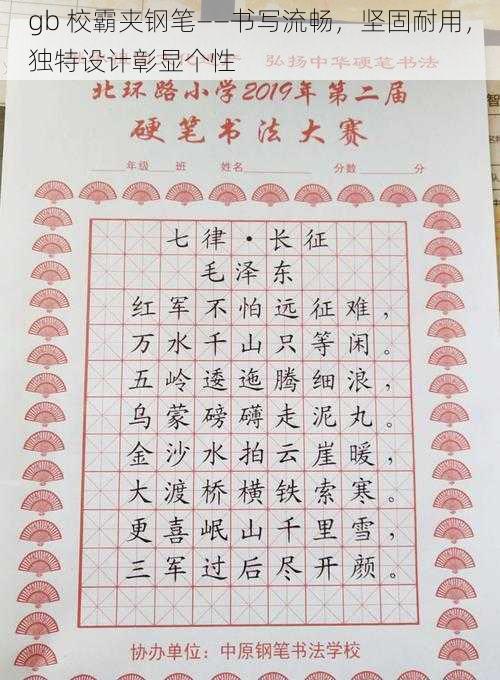 gb 校霸夹钢笔——书写流畅，坚固耐用，
独特设计彰显个性
弘扬中华硬笔书法
北环路小学2019年第二届
硬笔书法大赛
年级 班 姓名 分数 分
七律·长征
毛泽东
红军不怕远征难，
万水千山只等闲。
五岭逶迤腾细浪，
乌蒙磅礴走泥丸。
金沙水拍云崖暖，
大渡桥横铁索寒。
更喜岷山千里雪，
三军过后尽开颜。
协办单位：中原钢笔书法学校